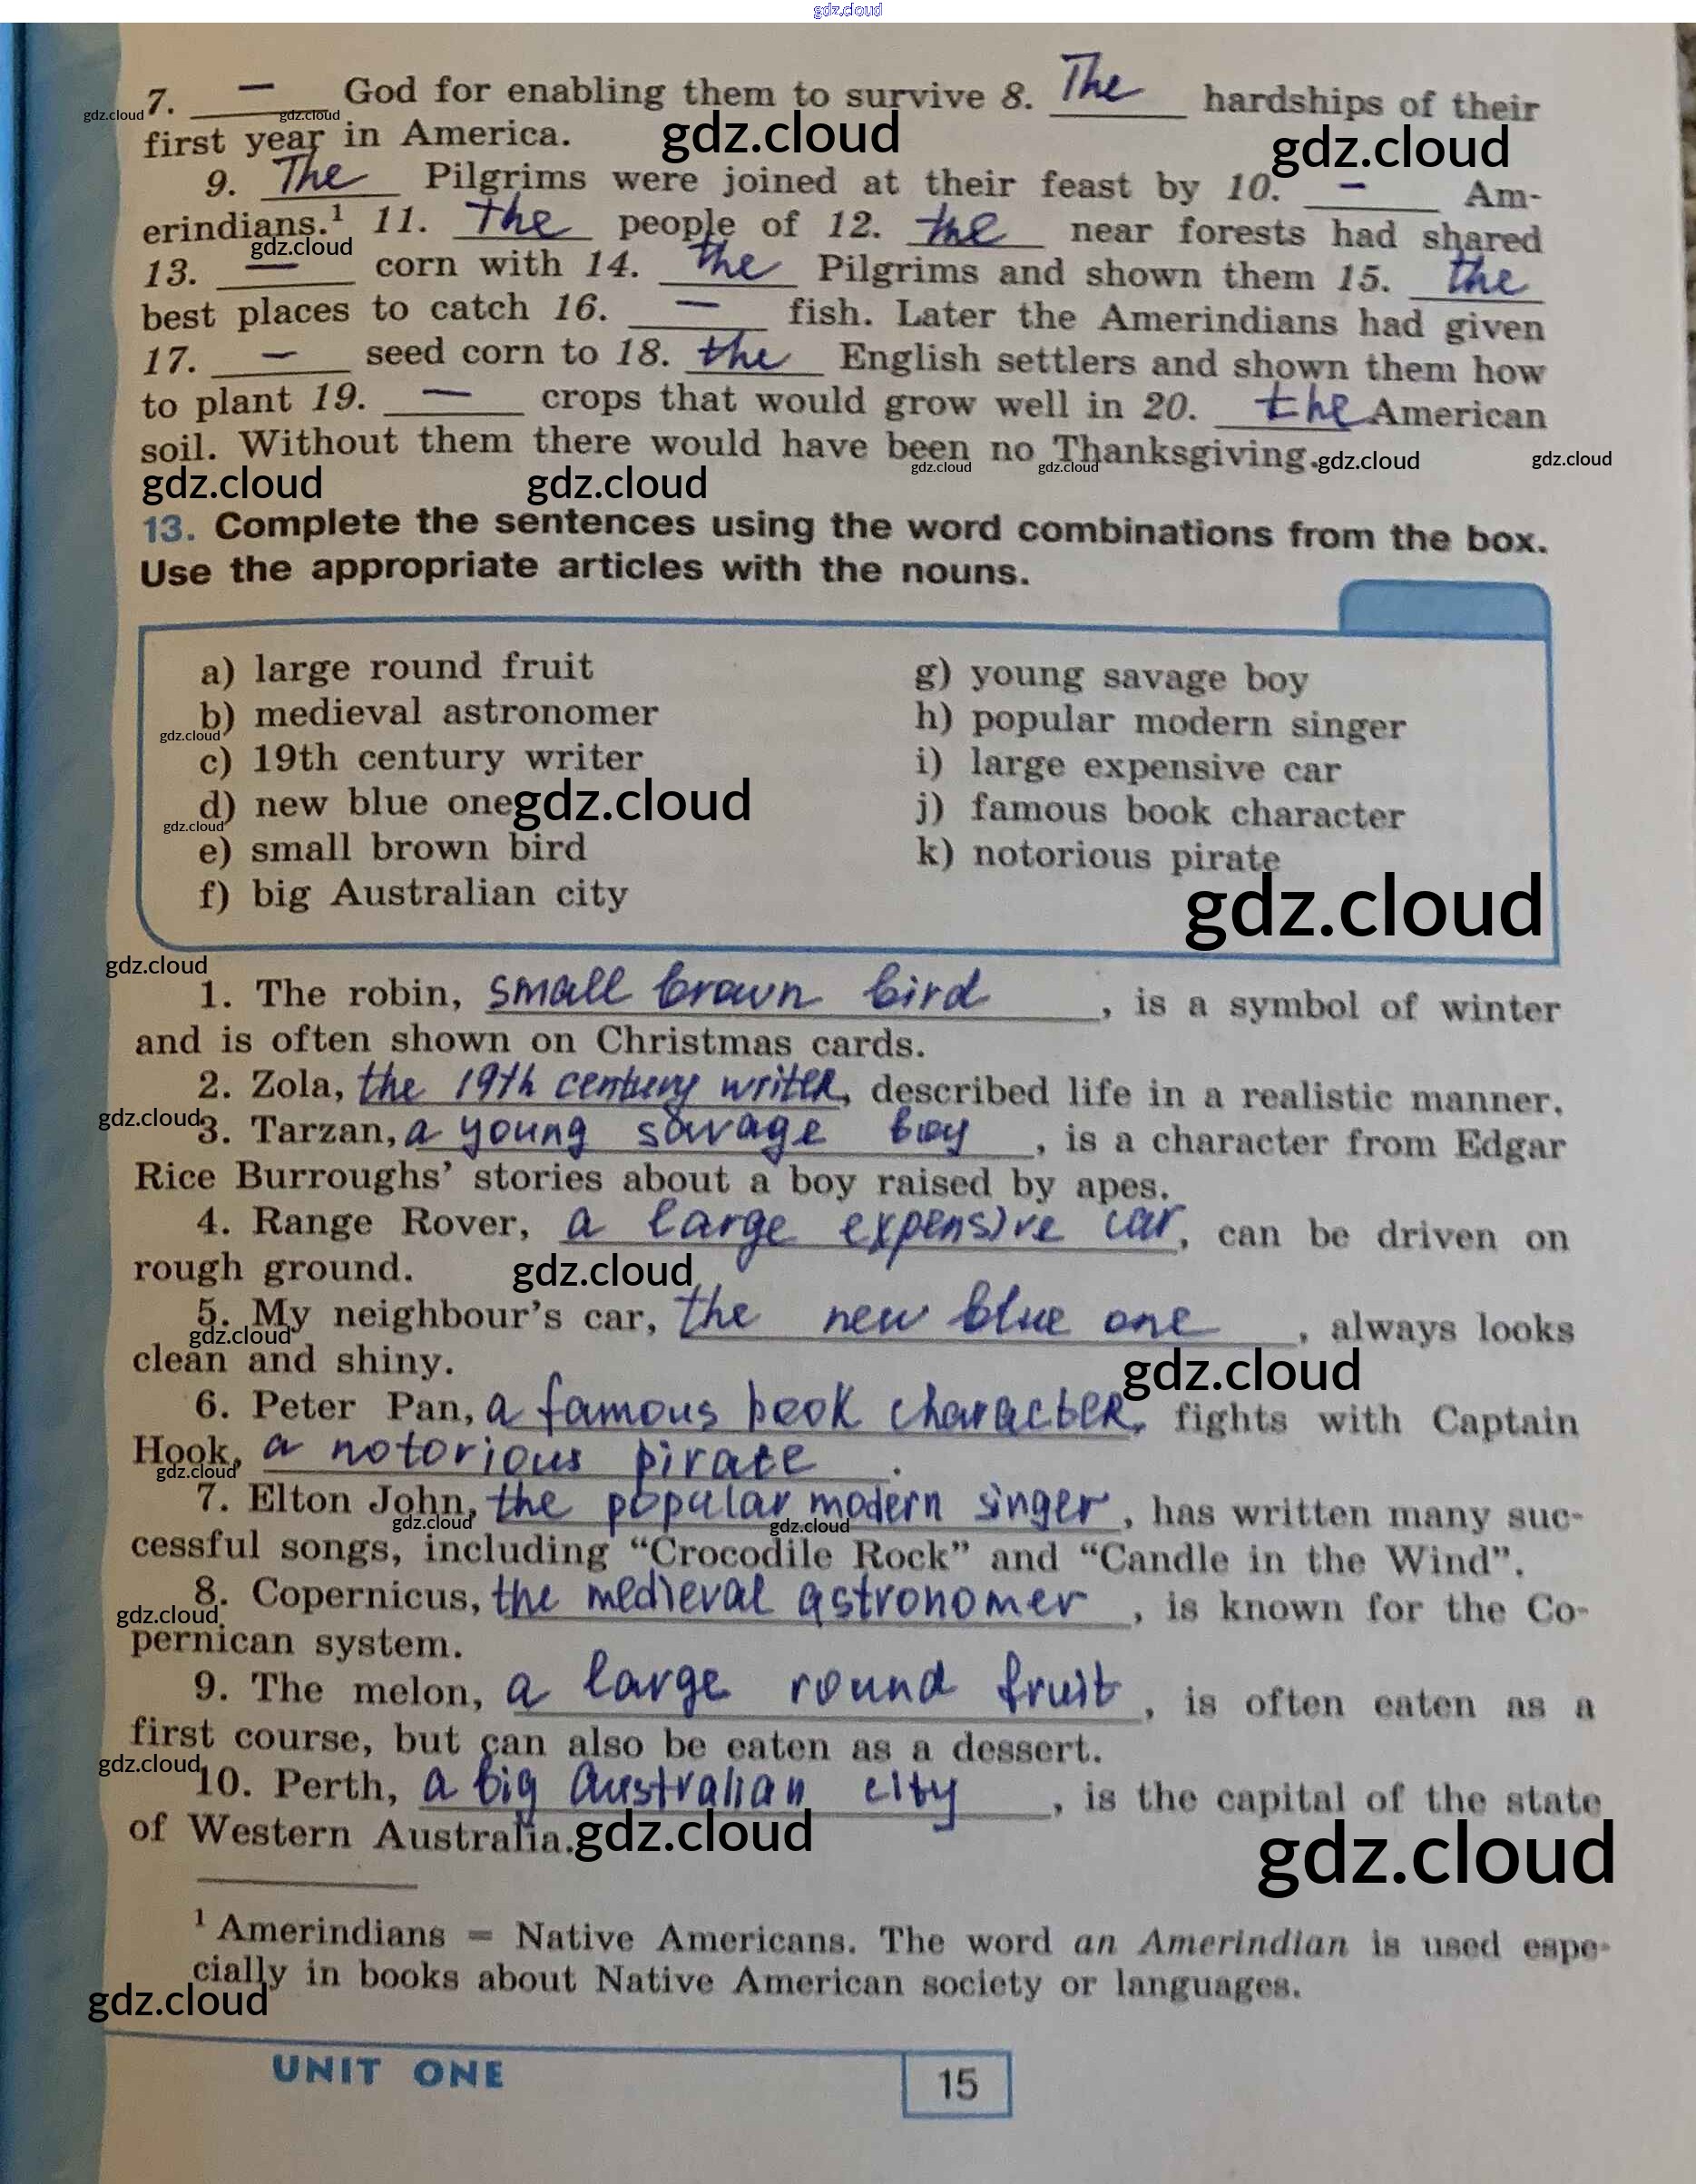 gdz.cloud
7. — God for enabling them to survive 8. The hardships of their
gdz.cloud gdz.cloud
first year in America. gdz.cloud gdz.cloud
9. The Pilgrims were joined at their feast by 10. — Am-
erindians.¹ 11. the people of 12. the near forests had shared
gdz.cloud
13. — corn with 14. the Pilgrims and shown them 15. the
best places to catch 16. — fish. Later the Amerindians had given
17. — seed corn to 18. the English settlers and shown them how
to plant 19. — crops that would grow well in 20. the American
soil. Without them there would have been no Thanksgiving. gdz.cloud gdz.cloud
gdz.cloud gdz.cloud gdz.cloud gdz.cloud
13. Complete the sentences using the word combinations from the box.
Use the appropriate articles with the nouns.
a) large round fruit
b) medieval astronomer
gdz.cloud
c) 19th century writer
d) new blue one gdz.cloud
gdz.cloud
e) small brown bird
f) big Australian city
g) young savage boy
h) popular modern singer
i) large expensive car
j) famous book character
k) notorious pirate
gdz.cloud
gdz.cloud
1. The robin, small brown bird, is a symbol of winter
and is often shown on Christmas cards.
2. Zola, the 19th century writer, described life in a realistic manner.
gdz.cloud
3. Tarzan, a young savage boy, is a character from Edgar
Rice Burroughs' stories about a boy raised by apes.
4. Range Rover, a large expensive car, can be driven on
rough ground. gdz.cloud
5. My neighbour's car, the new blue one, always looks
gdz.cloud
clean and shiny. gdz.cloud
6. Peter Pan, a famous book character, fights with Captain
Hook, a notorious pirate.
gdz.cloud
7. Elton John, the popular modern singer, has written many suc-
gdz.cloud gdz.cloud
cessful songs, including "Crocodile Rock" and "Candle in the Wind".
8. Copernicus, the medieval astronomer, is known for the Co-
gdz.cloud
pernican system.
9. The melon, a large round fruit, is often eaten as a
first course, but can also be eaten as a dessert.
gdz.cloud
10. Perth, a big Australian city, is the capital of the state
of Western Australia. gdz.cloud gdz.cloud
¹ Amerindians = Native Americans. The word an Amerindian is used espe-
cially in books about Native American society or languages.
gdz.cloud
UNIT ONE
15